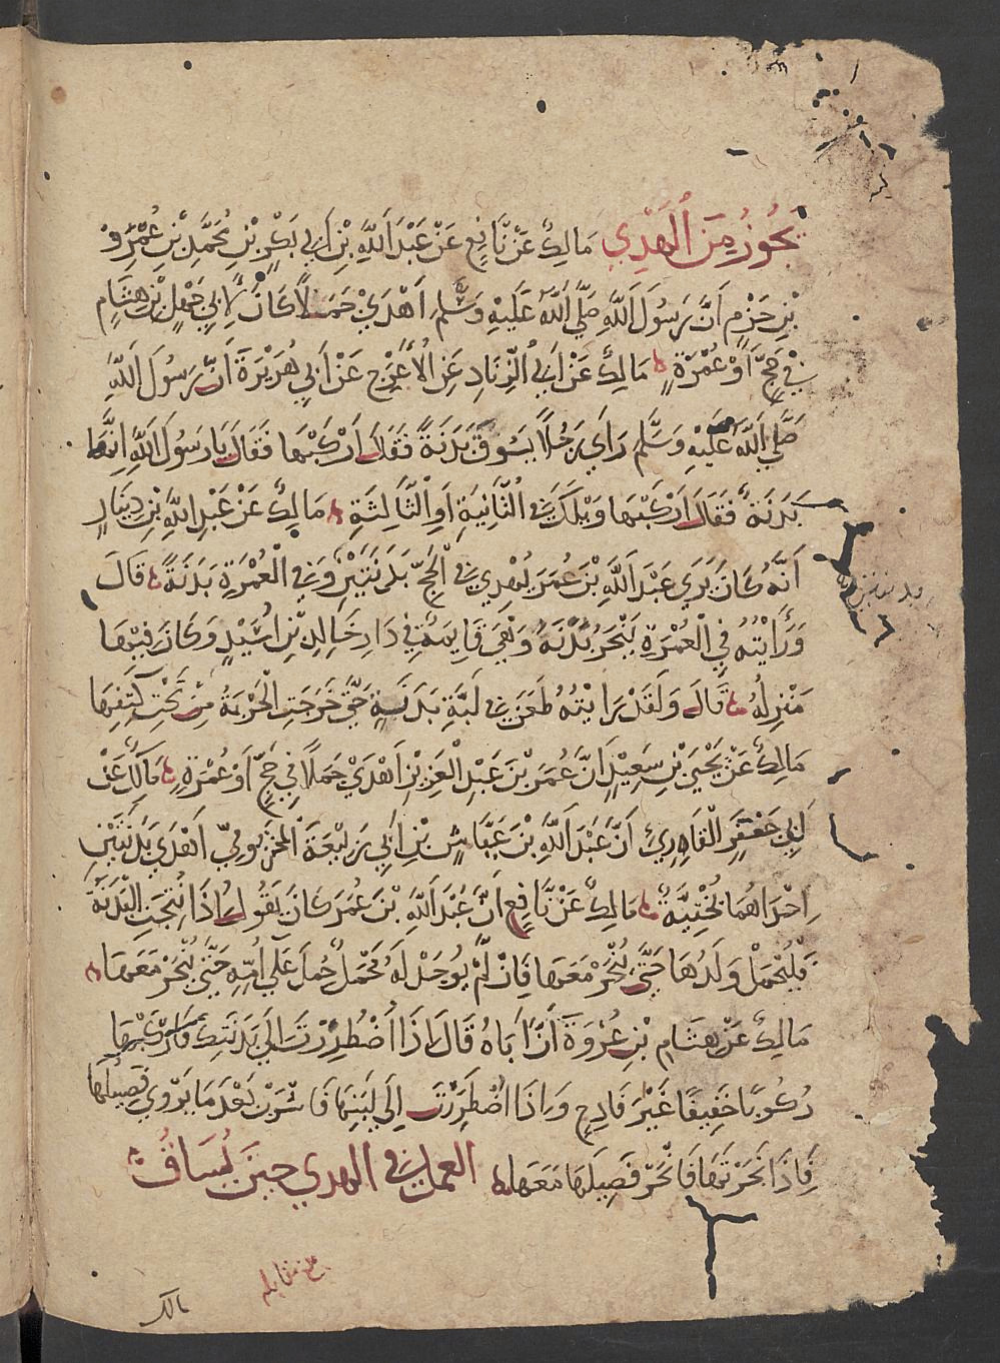 يَجُوزُ مِنَ الْهَدْيِ مَالِكٌ عَنْ نَّافِعٍ عَنْ عَبْدِ اللَّهِ بْنِ أَبِي بَكْرِ بْنِ مُحَمَّدِ بْنِ عَمْرِو
بْنِ حَزْمٍ أَنَّ رَسُولَ اللَّهِ صَلَّى اللَّهُ عَلَيْهِ وَسَلَّمَ أَهْدَى جَمَلًا كَانَ لِأَبِي جَهْلِ بْنِ هِشَامٍ
فِي حَجٍّ أَوْ عُمْرَةٍ مَالِكٌ عَنْ أَبِي الزِّنَادِ عَنِ الْأَعْرَجِ عَنْ أَبِي هُرَيْرَةَ أَنَّ رَسُولَ اللَّهِ
صَلَّى اللَّهُ عَلَيْهِ وَسَلَّمَ رَأَى رَجُلًا يَسُوقُ بَدَنَةً فَقَالَ ارْكَبْهَا فَقَالَ يَا رَسُولَ اللَّهِ إِنَّهَا
بَدَنَةٌ فَقَالَ ارْكَبْهَا وَيْلَكَ فِي الثَّانِيَةِ أَوِ الثَّالِثَةِ مَالِكٌ عَنْ عَبْدِ اللَّهِ بْنِ دِينَارٍ
أَنَّهُ كَانَ يَرَى عَبْدَ اللَّهِ بْنَ عُمَرَ يُهْدِي فِي الْحَجِّ بَدَنَتَيْنِ وَفِي الْعُمْرَةِ بَدَنَةً قَالَ
وَرَأَيْتُهُ فِي الْعُمْرَةِ يَنْحَرُ بَدَنَةً وَهْيَ قَايِمَةٌ فِي دَارِ خَالِدِ بْنِ أُسَيْدٍ وَكَانَ فِيهَا
مَنْزِلُهُ قَالَ وَلَقَدْ رَأَيْتُهُ طَعَنَ فِي لَبَّةِ بَدَنَتِهِ حَتَّى خَرَجَتِ الْحَرْبَةُ مِنْ تَحْتِ كَتِفِهَا
مَالِكٌ عَنْ يَحْيَى بْنِ سَعِيدٍ أَنَّ عُمَرَ بْنَ عَبْدِ الْعَزِيزِ أَهْدَى جَمَلًا فِي حَجٍّ أَوْ عُمْرَةٍ مَالِكٌ عَنْ
أَبِي جَعْفَرٍ الْقَارِيِّ أَنَّ عَبْدَ اللَّهِ بْنَ عَيَّاشِ بْنِ أَبِي رَبِيعَةَ الْمَخْزُومِيَّ أَهْدَى بَدَنَتَيْنِ
إِحْدَاهُمَا بُخْتِيَّةٌ مَالِكٌ عَنْ نَّافِعٍ أَنَّ عَبْدَ اللَّهِ بْنَ عُمَرَ كَانَ يَقُولُ إِذَا نُتِجَتِ الْبَدَنَةُ
فَلْيُحْمَلْ وَلَدُهَا حَتَّى يُنْحَرَ مَعَهَا فَإِنْ لَّمْ يُوجَدْ لَهُ مَحْمَلٌ حُمِلَ عَلَى أُمِّهِ حَتَّى يُنْحَرَ مَعَهَا
مَالِكٌ عَنْ هِشَامِ بْنِ عُرْوَةَ أَنَّ أَبَاهُ قَالَ إِذَا اضْطُرِرْتَ إِلَى بَدَنَتِكَ فَارْكَبْهَا
رُكُوبًا خَفِيفًا غَيْرَ فَادِحٍ وَإِذَا اضْطُرِرْتَ إِلَى لَبَنِهَا فَاشْرَبْ بَعْدَ مَا يَرْوَى فَصِيلُهَا
فَإِذَا نَحَرْتَهَا فَانْحَرْ فَصِيلَهَا مَعَهَا الْعَمَلُ فِي الْهَدْيِ حِينَ يُسَاقُ
مالك